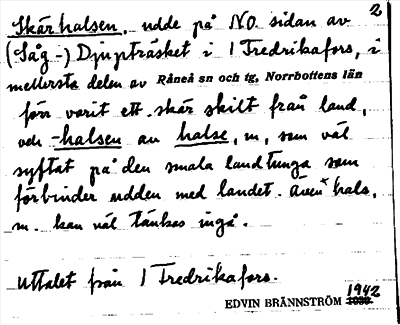 2
Skärhalsen, udde på NO. sidan av
(Såg-) Djupträsket i 1 Fredrikafors, i
mellersta delen av Råneå sn och tg, Norrbottens län
förr varit ett skär skilt från land,
och -halsen av halse, m., som väl
syftat på den smala landtunga som
förbinder udden med landet. Även hals,
m. kan väl tänkas ingå.
Uttalet från 1 Fredrikafors.
1942
EDVIN BRÄNNSTRÖM 1939.